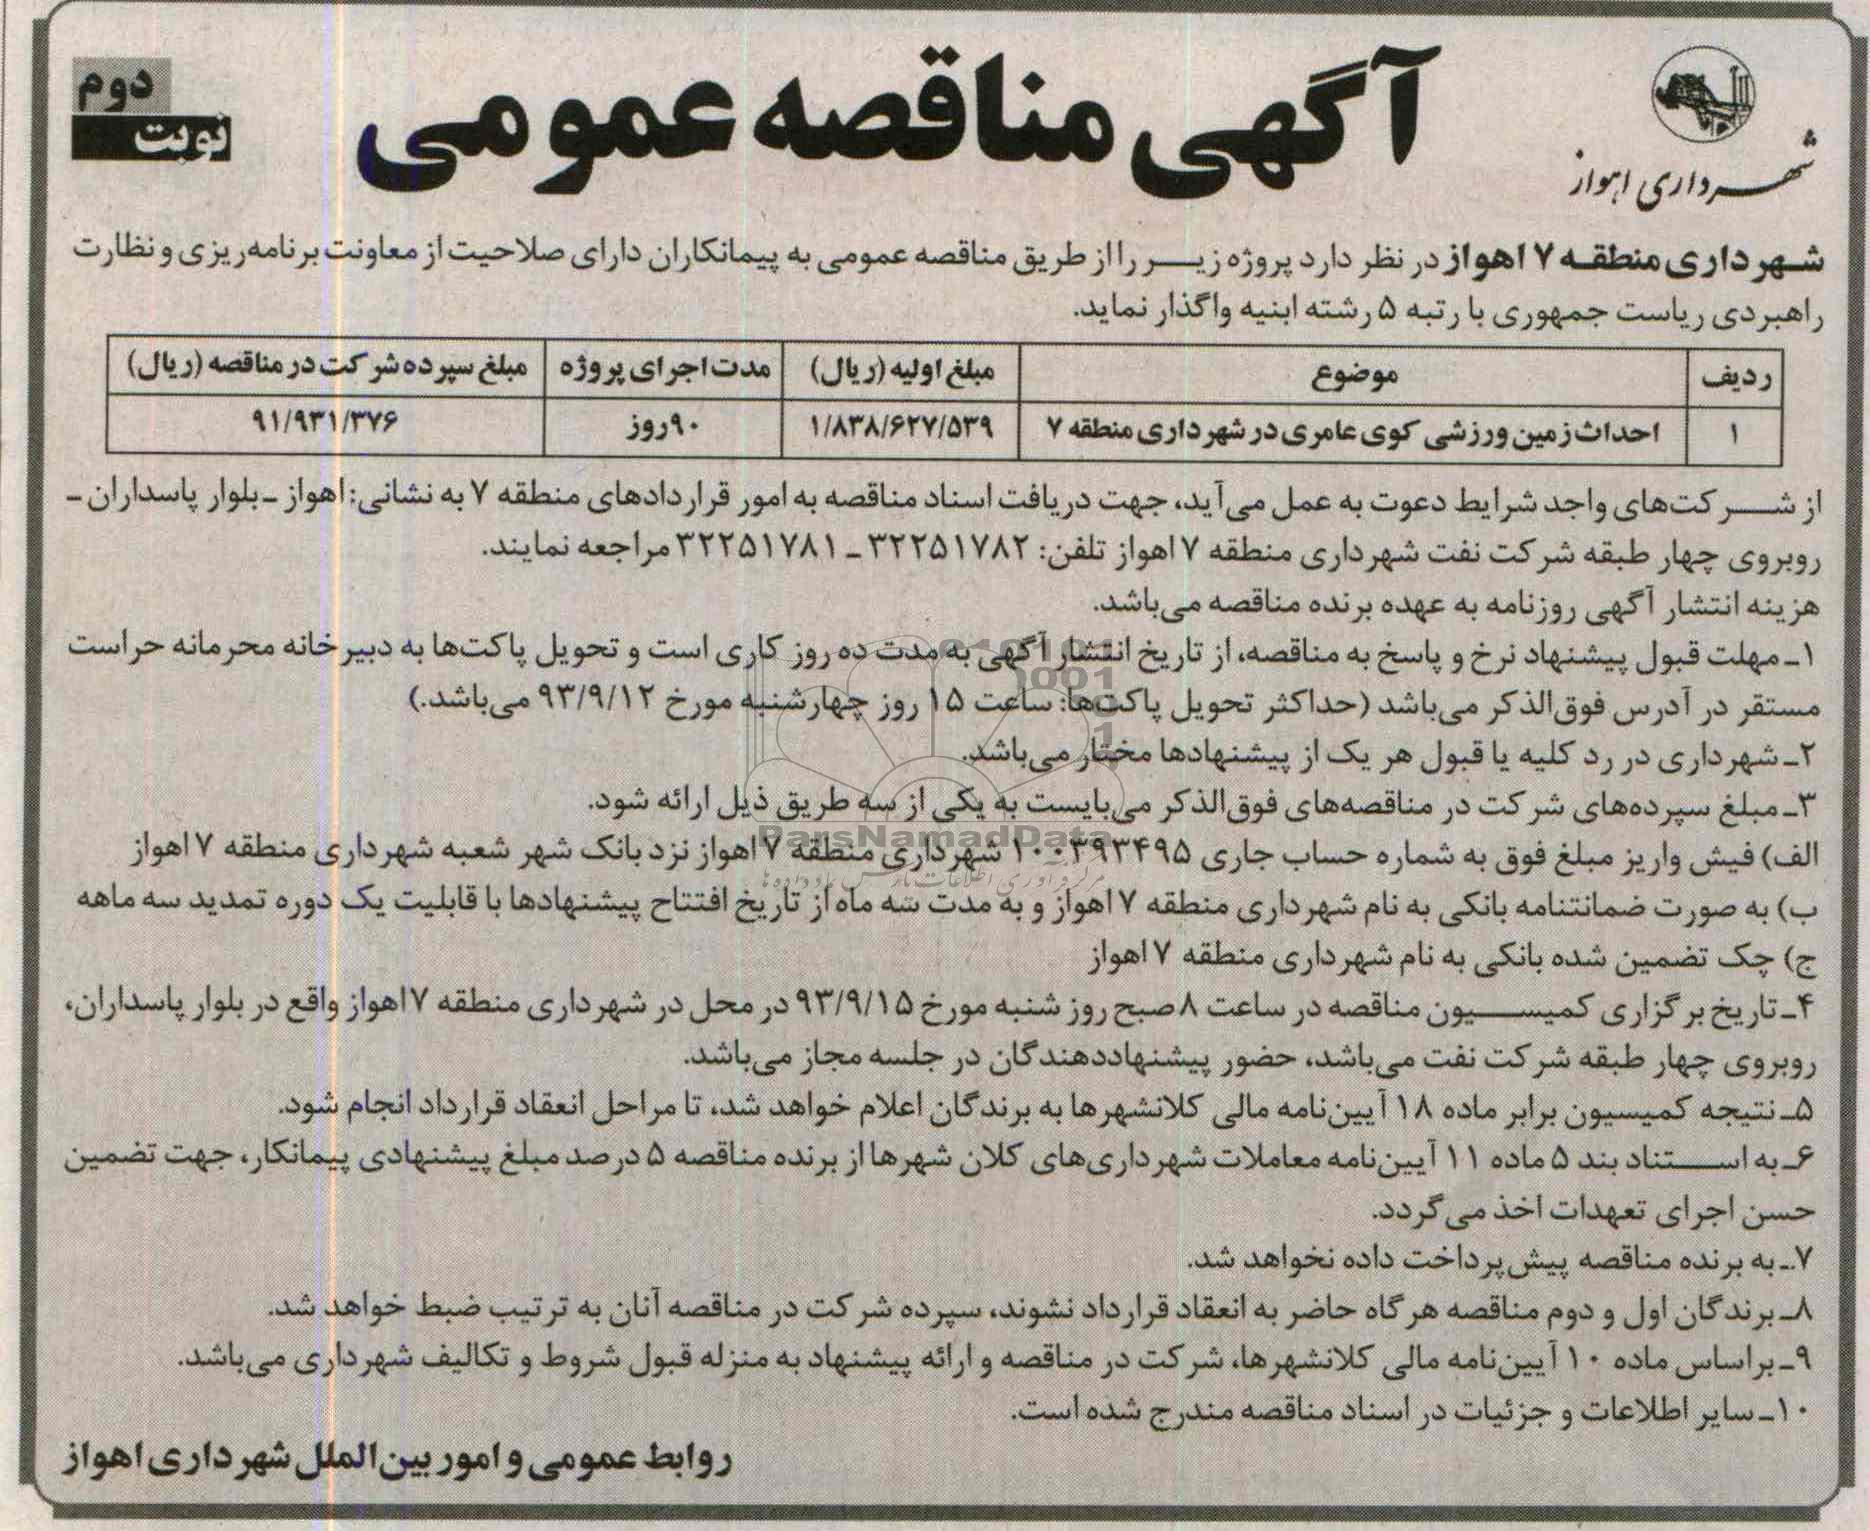 شهرداری اهواز
آگهی مناقصه عمومی
نوبت دوم
شهرداری منطقه ۷ اهواز در نظر دارد پروژه زیر را از طریق مناقصه عمومی به پیمانکاران دارای صلاحیت از معاونت برنامه‌ریزی و نظارت
راهبردی ریاست جمهوری با رتبه ۵ رشته ابنیه واگذار نماید.
ردیف موضوع مبلغ اولیه (ریال) مدت اجرای پروژه مبلغ سپرده شرکت در مناقصه (ریال)
۱ احداث زمین ورزشی کوی عامری در شهرداری منطقه ۷ ۱/۸۳۸/۶۲۷/۵۳۹ ۹۰روز ۹۱/۹۳۱/۳۷۶
از شرکت‌های واجد شرایط دعوت به عمل می‌آید، جهت دریافت اسناد مناقصه به امور قراردادهای منطقه ۷ به نشانی: اهواز ـ بلوار پاسداران ـ
روبروی چهار طبقه شرکت نفت شهرداری منطقه ۷ اهواز تلفن: ۳۲۲۵۱۷۸۲ ـ ۳۲۲۵۱۷۸۱ مراجعه نمایند.
هزینه انتشار آگهی روزنامه به عهده برنده مناقصه می‌باشد.
۱ـ مهلت قبول پیشنهاد نرخ و پاسخ به مناقصه، از تاریخ انتشار آگهی به مدت ده روز کاری است و تحویل پاکت‌ها به دبیرخانه محرمانه حراست
مستقر در آدرس فوق‌الذکر می‌باشد (حداکثر تحویل پاکت‌ها: ساعت ۱۵ روز چهارشنبه مورخ ۹۳/۹/۱۲ می‌باشد.)
۲ـ شهرداری در رد کلیه یا قبول هر یک از پیشنهادها مختار می‌باشد.
۳ـ مبلغ سپرده‌های شرکت در مناقصه‌های فوق‌الذکر می‌بایست به یکی از سه طریق ذیل ارائه شود.
ParsNamadData
الف) فیش واریز مبلغ فوق به شماره حساب جاری ۱۰۰۳۹۳۴۹۵ شهرداری منطقه ۷ اهواز نزد بانک شهر شعبه شهرداری منطقه ۷ اهواز
ب) به صورت ضمانتنامه بانکی به نام شهرداری منطقه ۷ اهواز و به مدت سه ماه از تاریخ افتتاح پیشنهادها با قابلیت یک دوره تمدید سه ماهه
ج) چک تضمین شده بانکی به نام شهرداری منطقه ۷ اهواز
۴ـ تاریخ برگزاری کمیسیون مناقصه در ساعت ۸ صبح روز شنبه مورخ ۹۳/۹/۱۵ در محل در شهرداری منطقه ۷ اهواز واقع در بلوار پاسداران،
روبروی چهار طبقه شرکت نفت می‌باشد، حضور پیشنهاددهندگان در جلسه مجاز می‌باشد.
۵ـ نتیجه کمیسیون برابر ماده ۱۸ آیین‌نامه مالی کلانشهرها به برندگان اعلام خواهد شد، تا مراحل انعقاد قرارداد انجام شود.
۶ـ به استناد بند ۵ ماده ۱۱ آیین‌نامه معاملات شهرداری‌های کلان شهرها از برنده مناقصه ۵ درصد مبلغ پیشنهادی پیمانکار، جهت تضمین
حسن اجرای تعهدات اخذ می‌گردد.
۷ـ به برنده مناقصه پیش‌پرداخت داده نخواهد شد.
۸ـ برندگان اول و دوم مناقصه هرگاه حاضر به انعقاد قرارداد نشوند، سپرده شرکت در مناقصه آنان به ترتیب ضبط خواهد شد.
۹ـ براساس ماده ۱۰ آیین‌نامه مالی کلانشهرها، شرکت در مناقصه و ارائه پیشنهاد به منزله قبول شروط و تکالیف شهرداری می‌باشد.
۱۰ـ سایر اطلاعات و جزئیات در اسناد مناقصه مندرج شده است.
روابط عمومی و امور بین‌الملل شهرداری اهواز